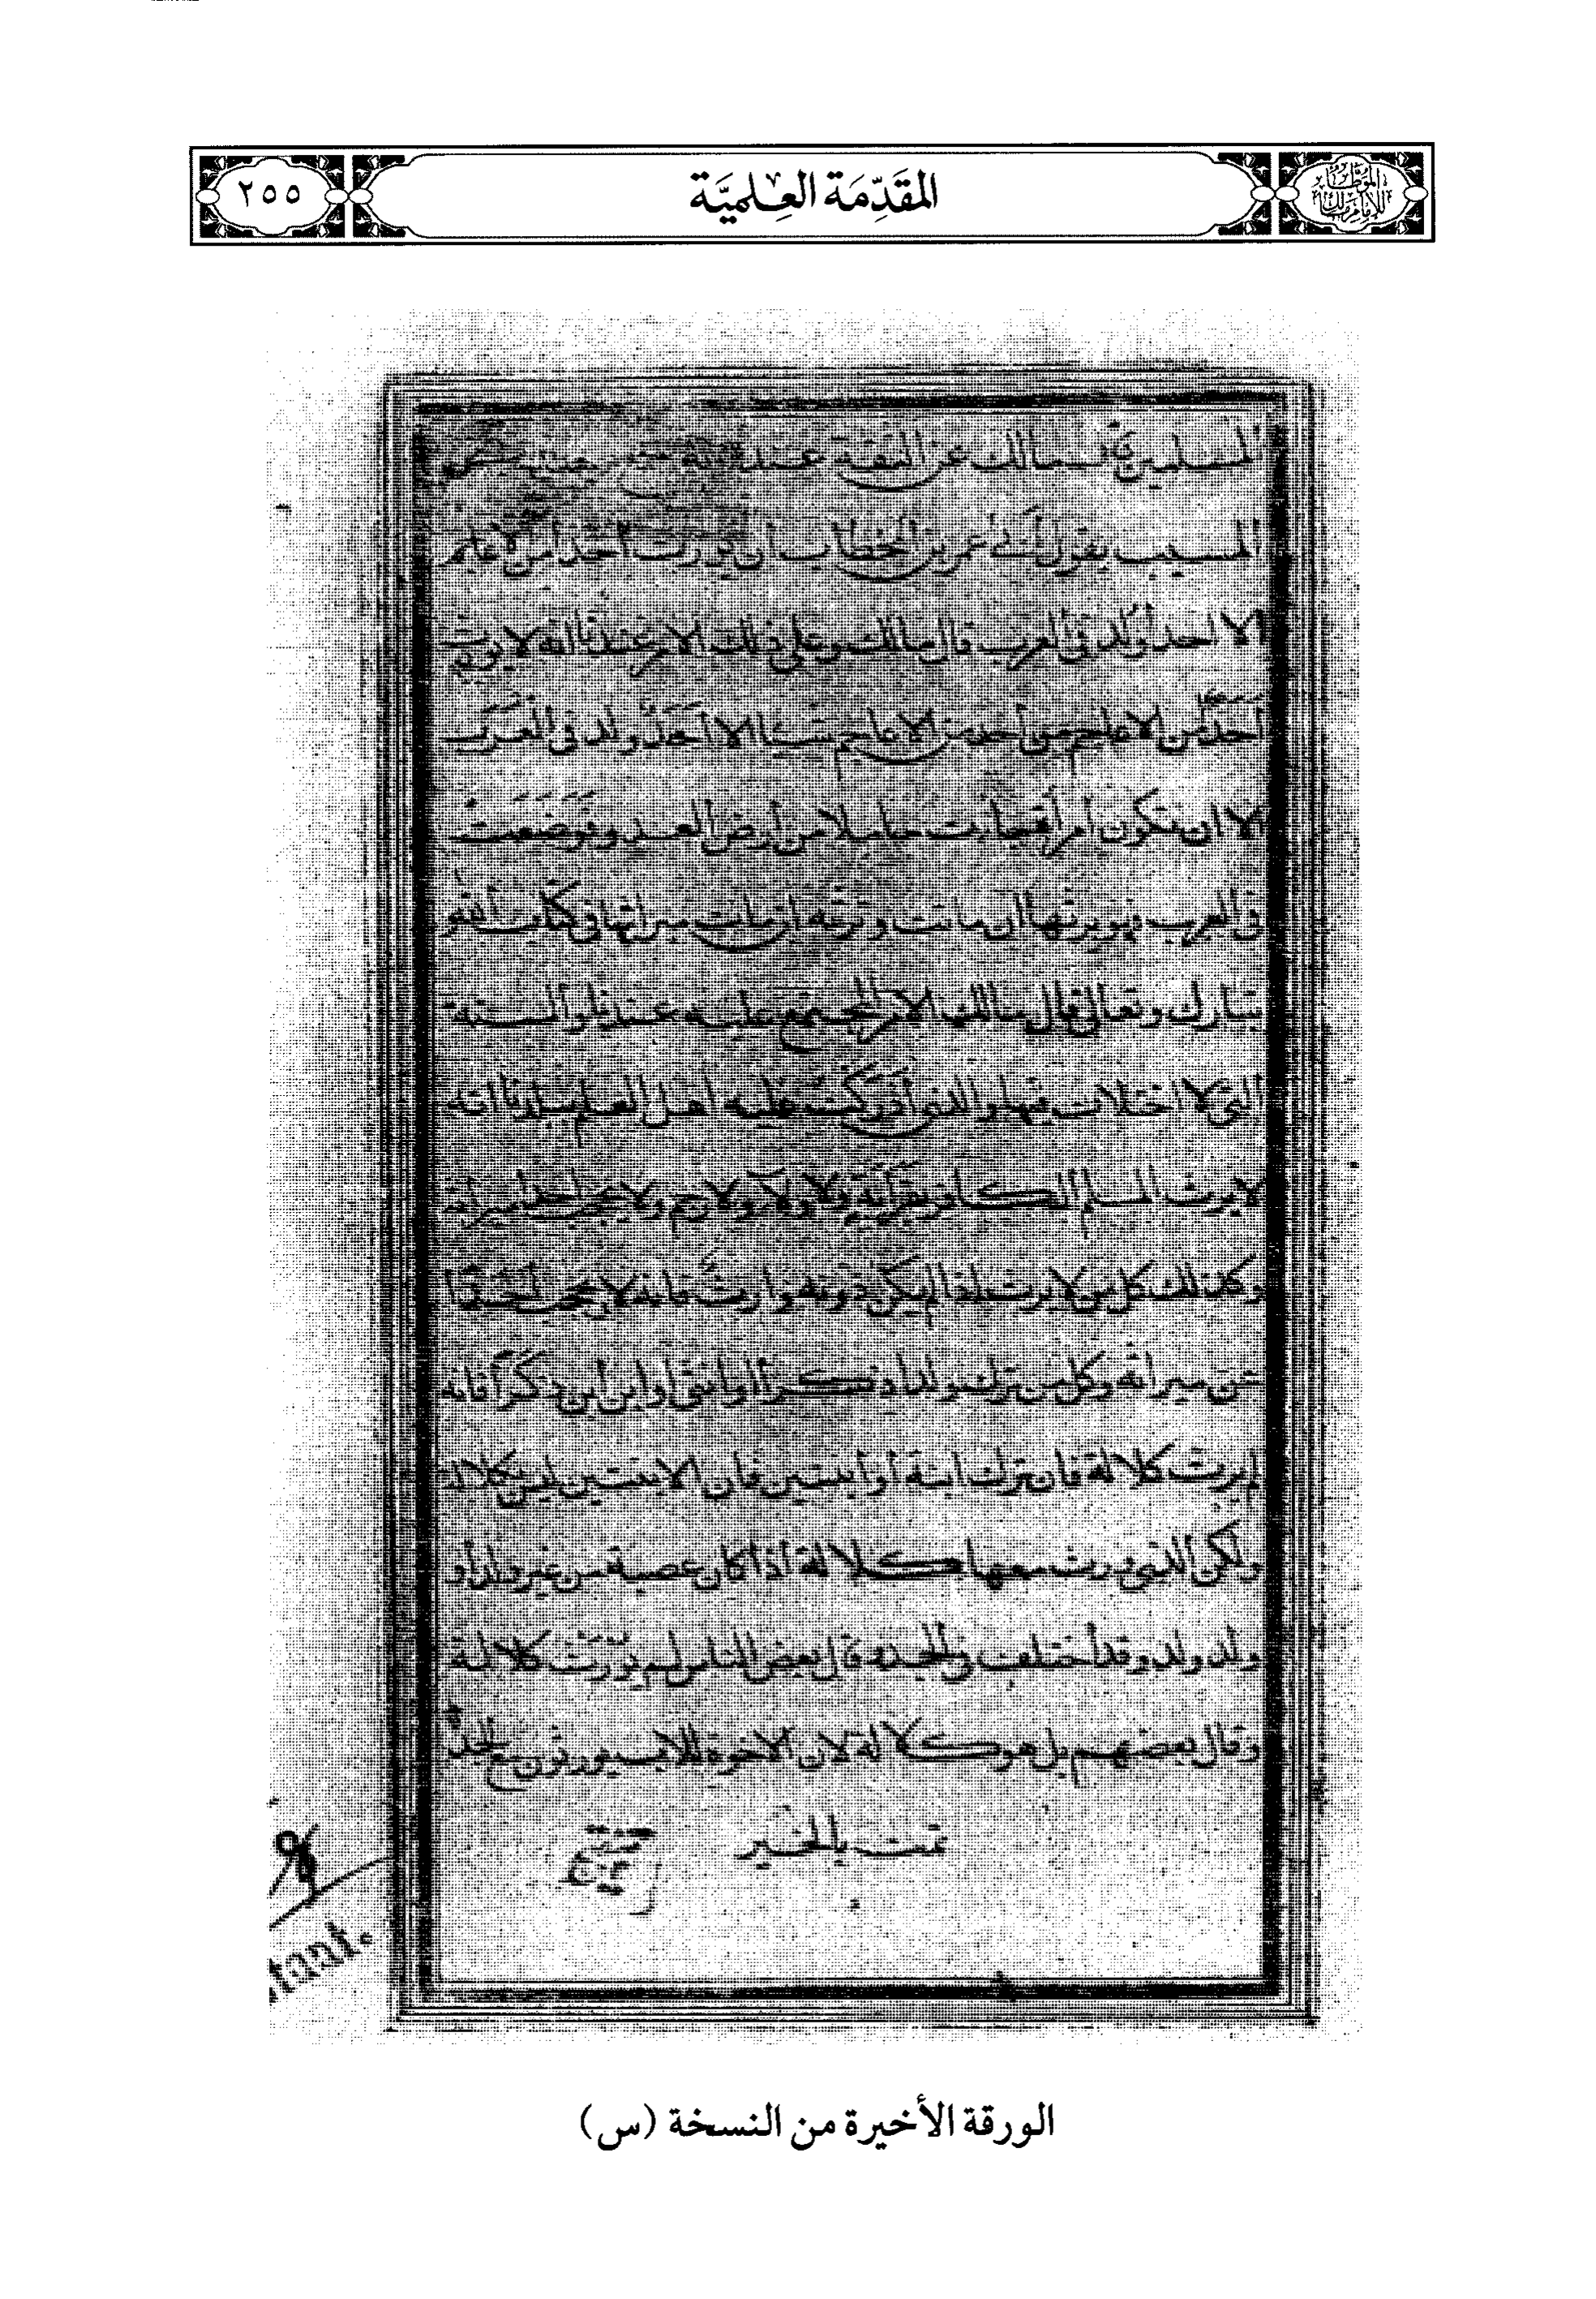 الموطأ للإمام مالك
المقدمة العلمية
٢٥٥
المسلمين مالك عن الثقة عنده
المسيب يقول أبى عمر بن الخطاب ان يورث احدا من الاعاجم
الا احدا ولد في العرب قال مالك وعلى ذلك الامر عندنا انه لا يورث
أحد من الاعاجم من أحد من الاعاجم شيئا الا أحد ولد في العرب
الا ان تكون امرأة جاءت حاملا من أرض العدو فوضعت
في العرب فهو يرثها ان ماتت وترثه ان مات ميراثها في كتاب الله
تبارك وتعالى قال مالك الامر المجتمع عليه عندنا والسنة
التي لا اختلاف فيها والذي أدركت عليه أهل العلم ببلدنا انه
لا يرث المسلم الكافر بقرابة ولا ولاء ولا رحم ولا يحجب احدا ميراثه
وكذلك كل من لا يرث اذا لم يكن دونه وارث فانه لا يحجب أحدا
عن ميراثه وكل من ترك ولدا ذكرا او انثى أو ابن ابن ذكرا فانه
لم يرث كلالة فان ترك ابنة أو ابنتين فان الابنتين ليس بكلالة
ولكن الذي يرث معها كلالة اذا كان عصبة من غير ولد أو
ولد ولد وقد أختلف في الجد قال بعض الناس لم يورث كلالة
وقال بعضهم بل هو كلالة لان الاخوة للاب يورثون مع الجد
تمت بالخير
tant.
الورقة الأخيرة من النسخة (س)